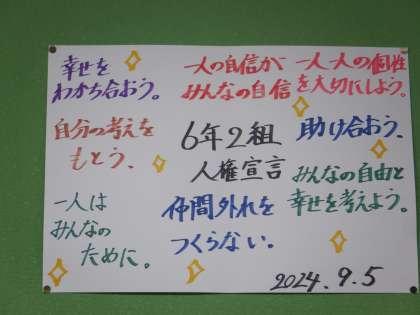 幸せを
わかち合おう。
一人の自信が
みんなの自信
一人一人の個性
を大切にしよう。
自分の考えを
もとう、
6年2組
人権宣言
助け合おう、
みんなの自由と
幸せを考えよう。
一人は
みんなの
ために。
仲間外れを
つくらない。
2024.9.5